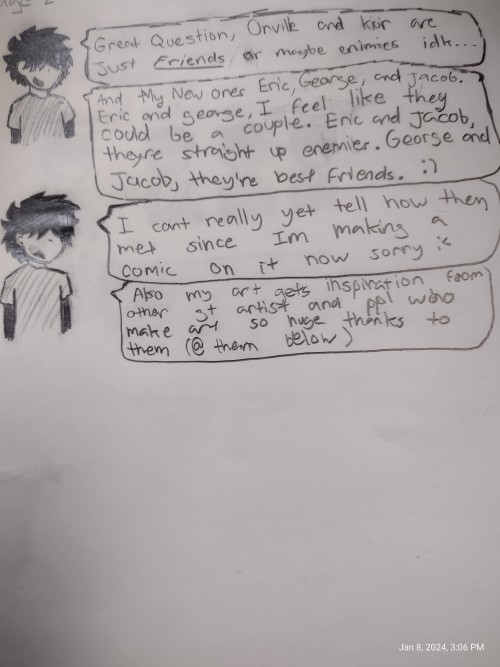 Page 2
Great Question, Orville and kior are
Just Friends or maybe enimies idk...
And My New ones Eric, George, and Jacob.
Eric and george, I feel like they
could be a couple. Eric and Jacob,
theyre straight up enemies. George and
Jacob, they're best friends. :)
I cant really yet tell how then
met since Im making a
comic on it now sorry :<
Also my art gets inspiration from
other gt artist and ppl who
make art so huge thanks to
them (@ them below)
Jan 8, 2024, 3:06 PM